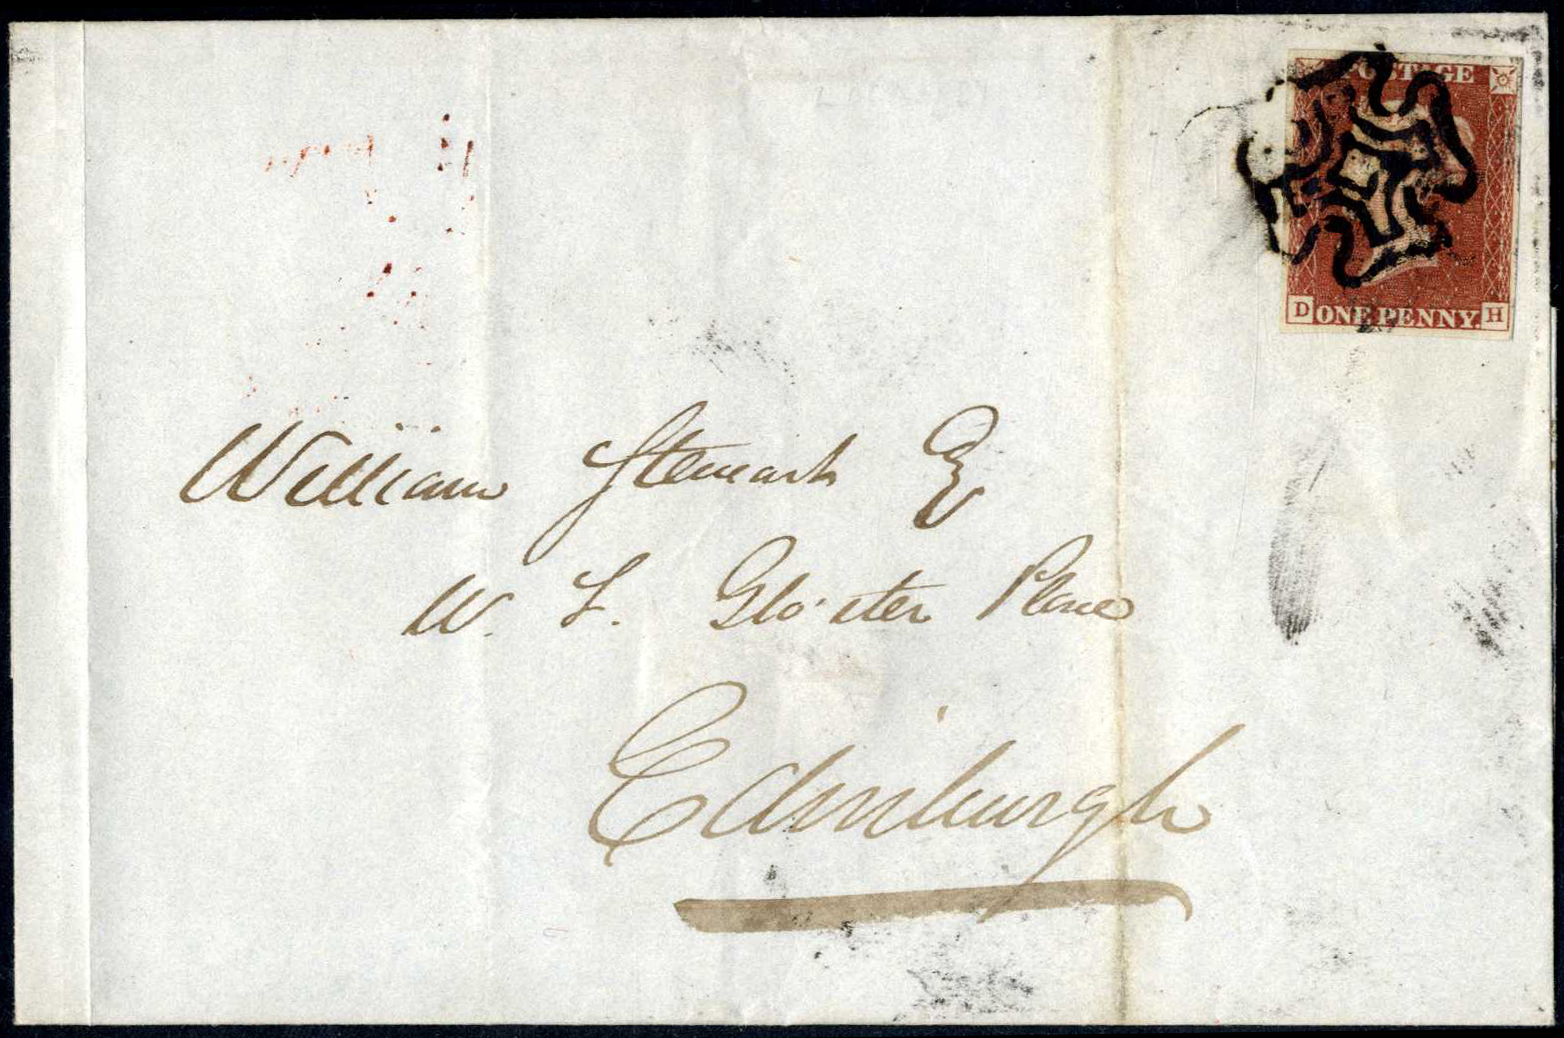 POSTAGE
D ONE PENNY. H
William Stewart Esq
W. S. Glo'ster Place
Edinburgh